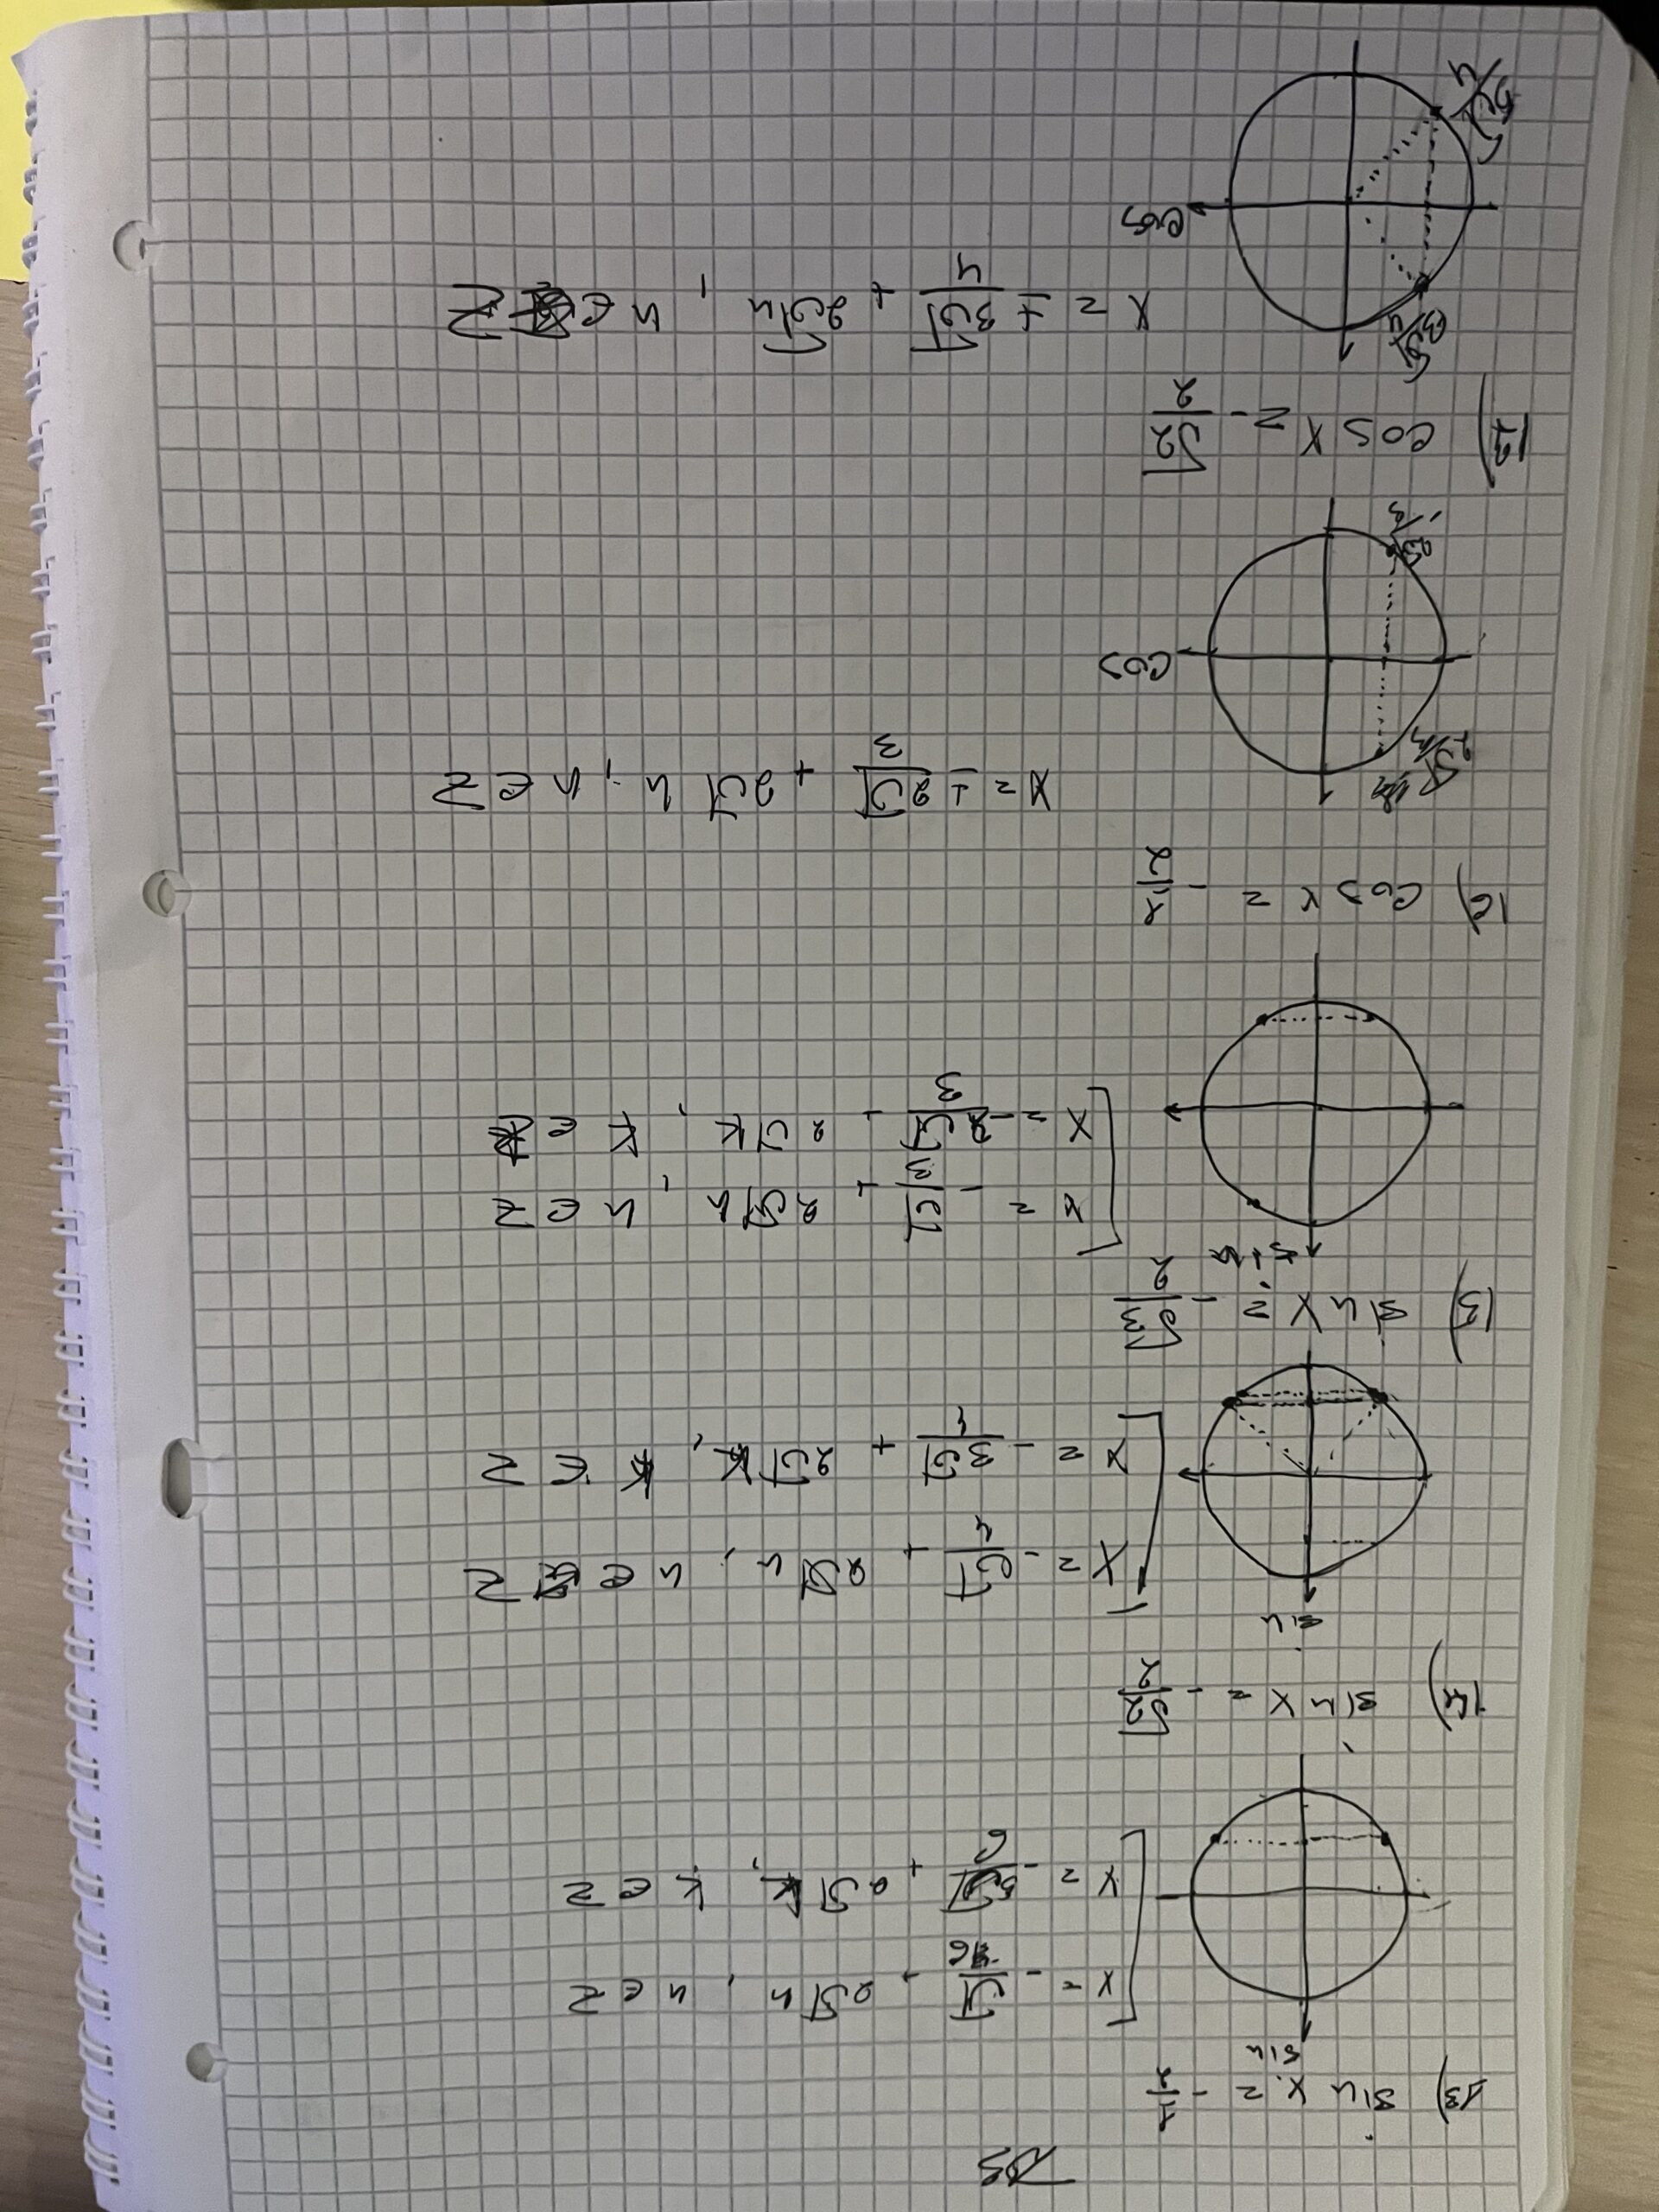 DS
13) sin x = -1/2
sin
x = -π/6 + 2πn, n ∈ Z
x = -5π/6 + 2πk, k ∈ Z
14) sin x = -√2/2
sin
x = -π/4 + 2πn, n ∈ Z
x = -3π/4 + 2πk, k ∈ Z
15) sin x = -√3/2
sin
x = -π/3 + 2πn, n ∈ Z
x = -2π/3 + 2πk, k ∈
16) cos x = -1/2
x = ± 2π/3 + 2πn, n ∈ Z
2π/3
cos
12) cos x = -√2/2
3π/4
x = ± 3π/4 + 2πn, n ∈ Z
cos
5π/4